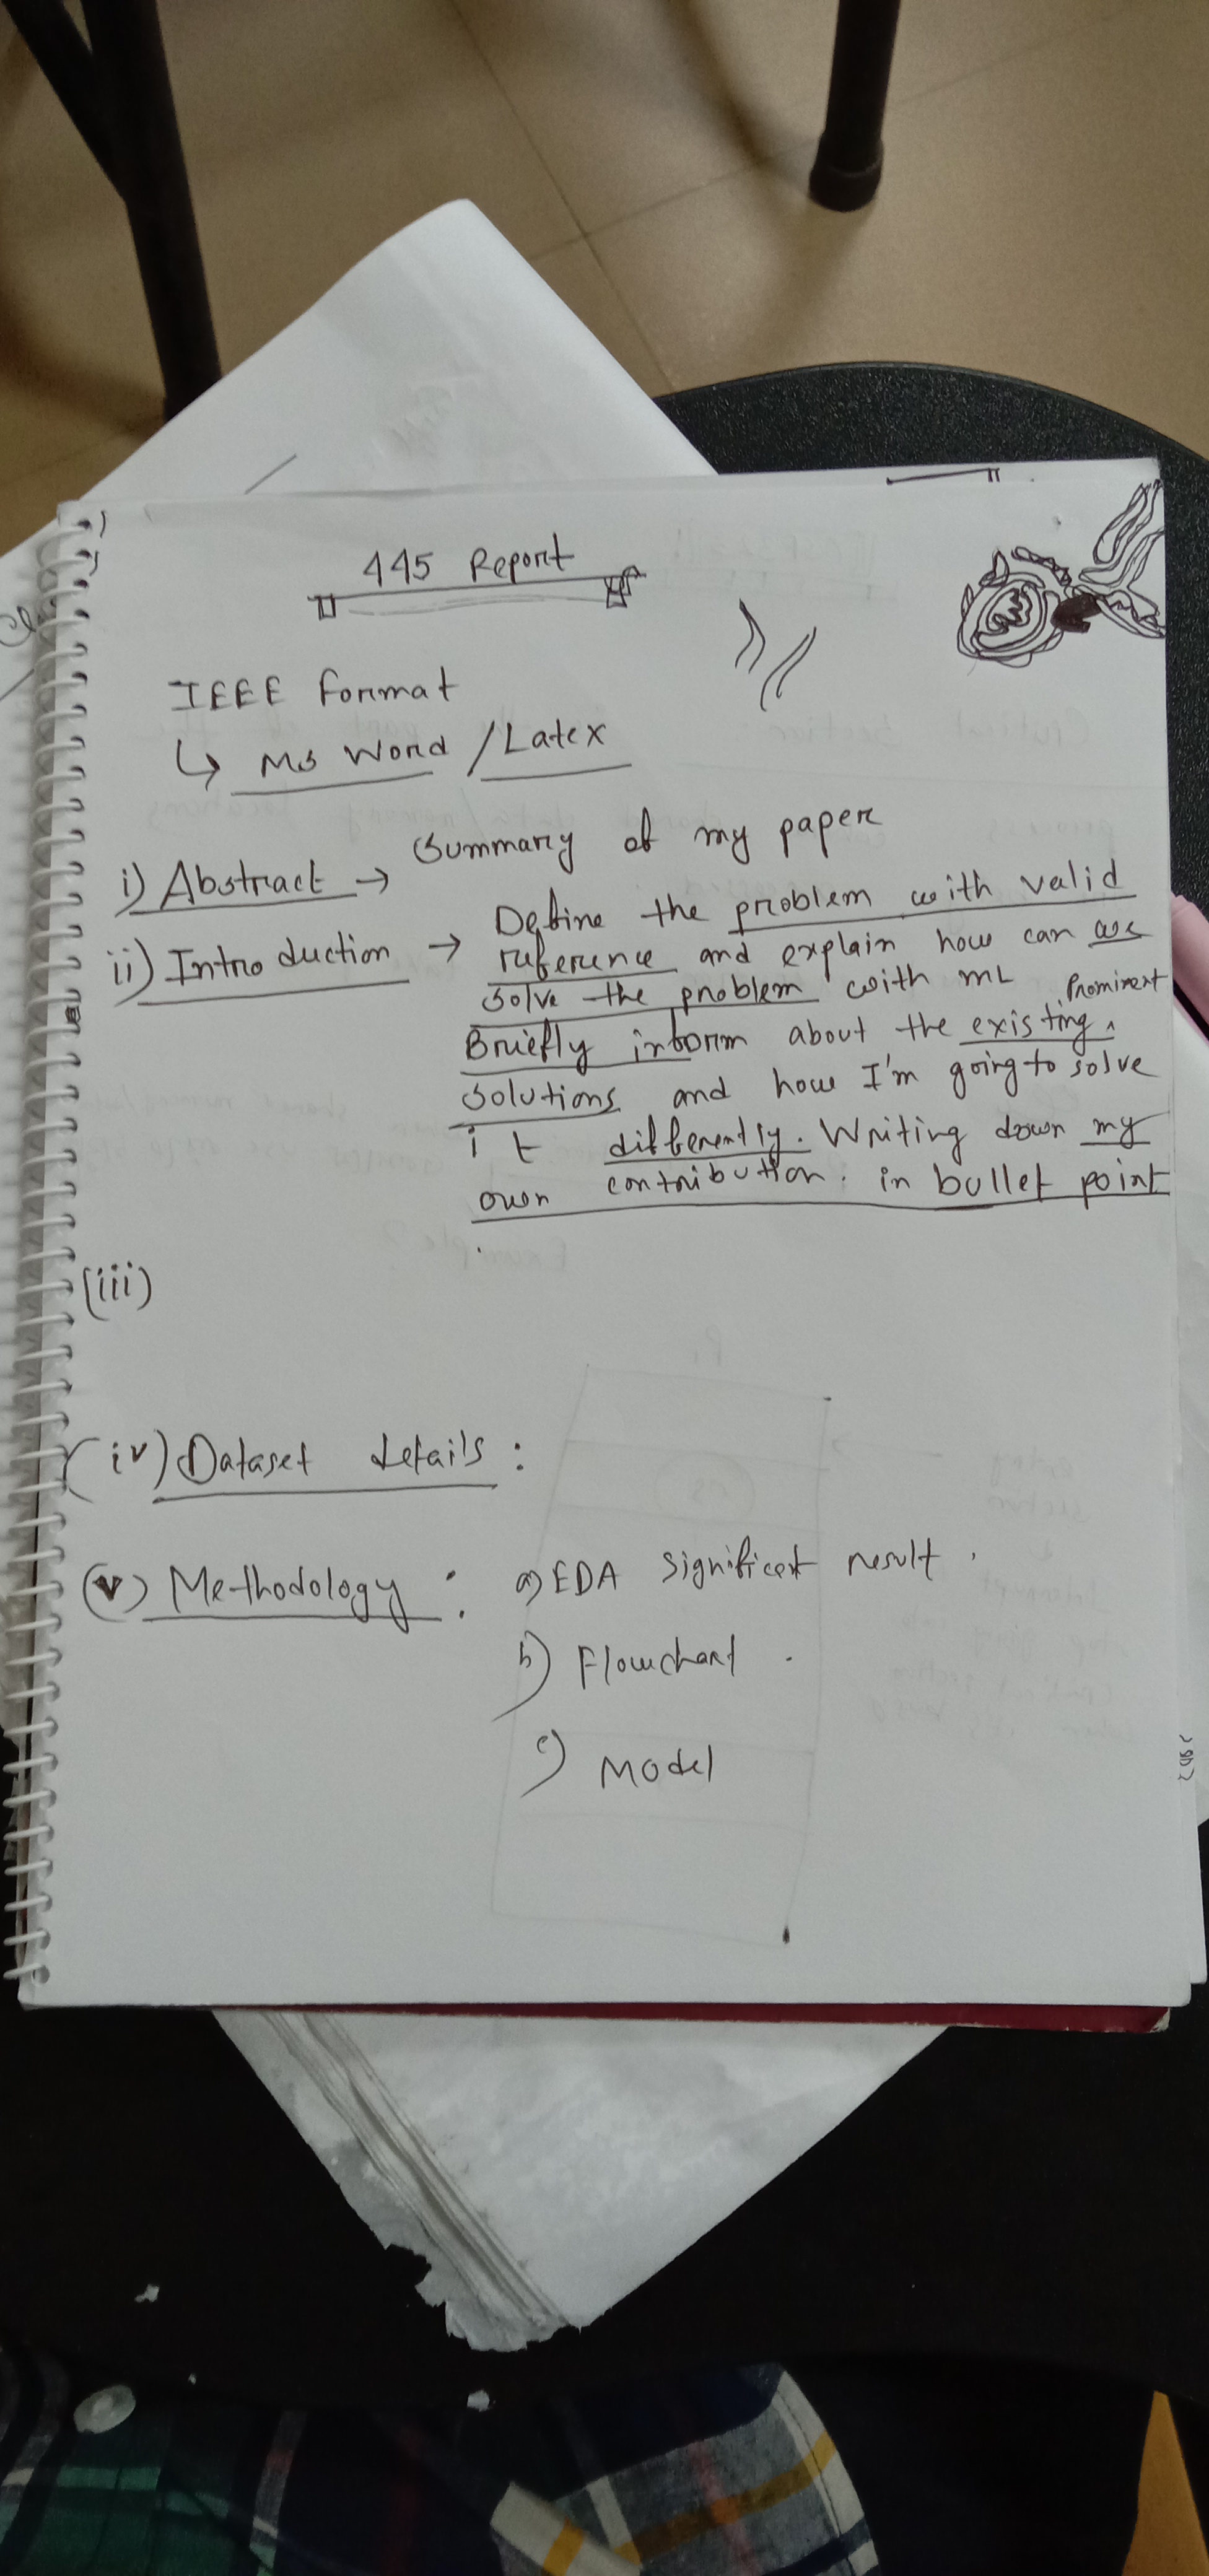 445 Report
IEEE format
↳ Ms Word / Latex
i) Abstract → Summary of my paper
ii) Introduction → Define the problem with valid
reference and explain how can we
solve the problem with ML
Briefly inform about the existing, Prominent
solutions and how I'm going to solve
it differently. Writing down my
own contribution. in bullet point
(iii)
(iv) Dataset details :
(v) Methodology : a) EDA significant result.
b) Flowchart.
c) Model